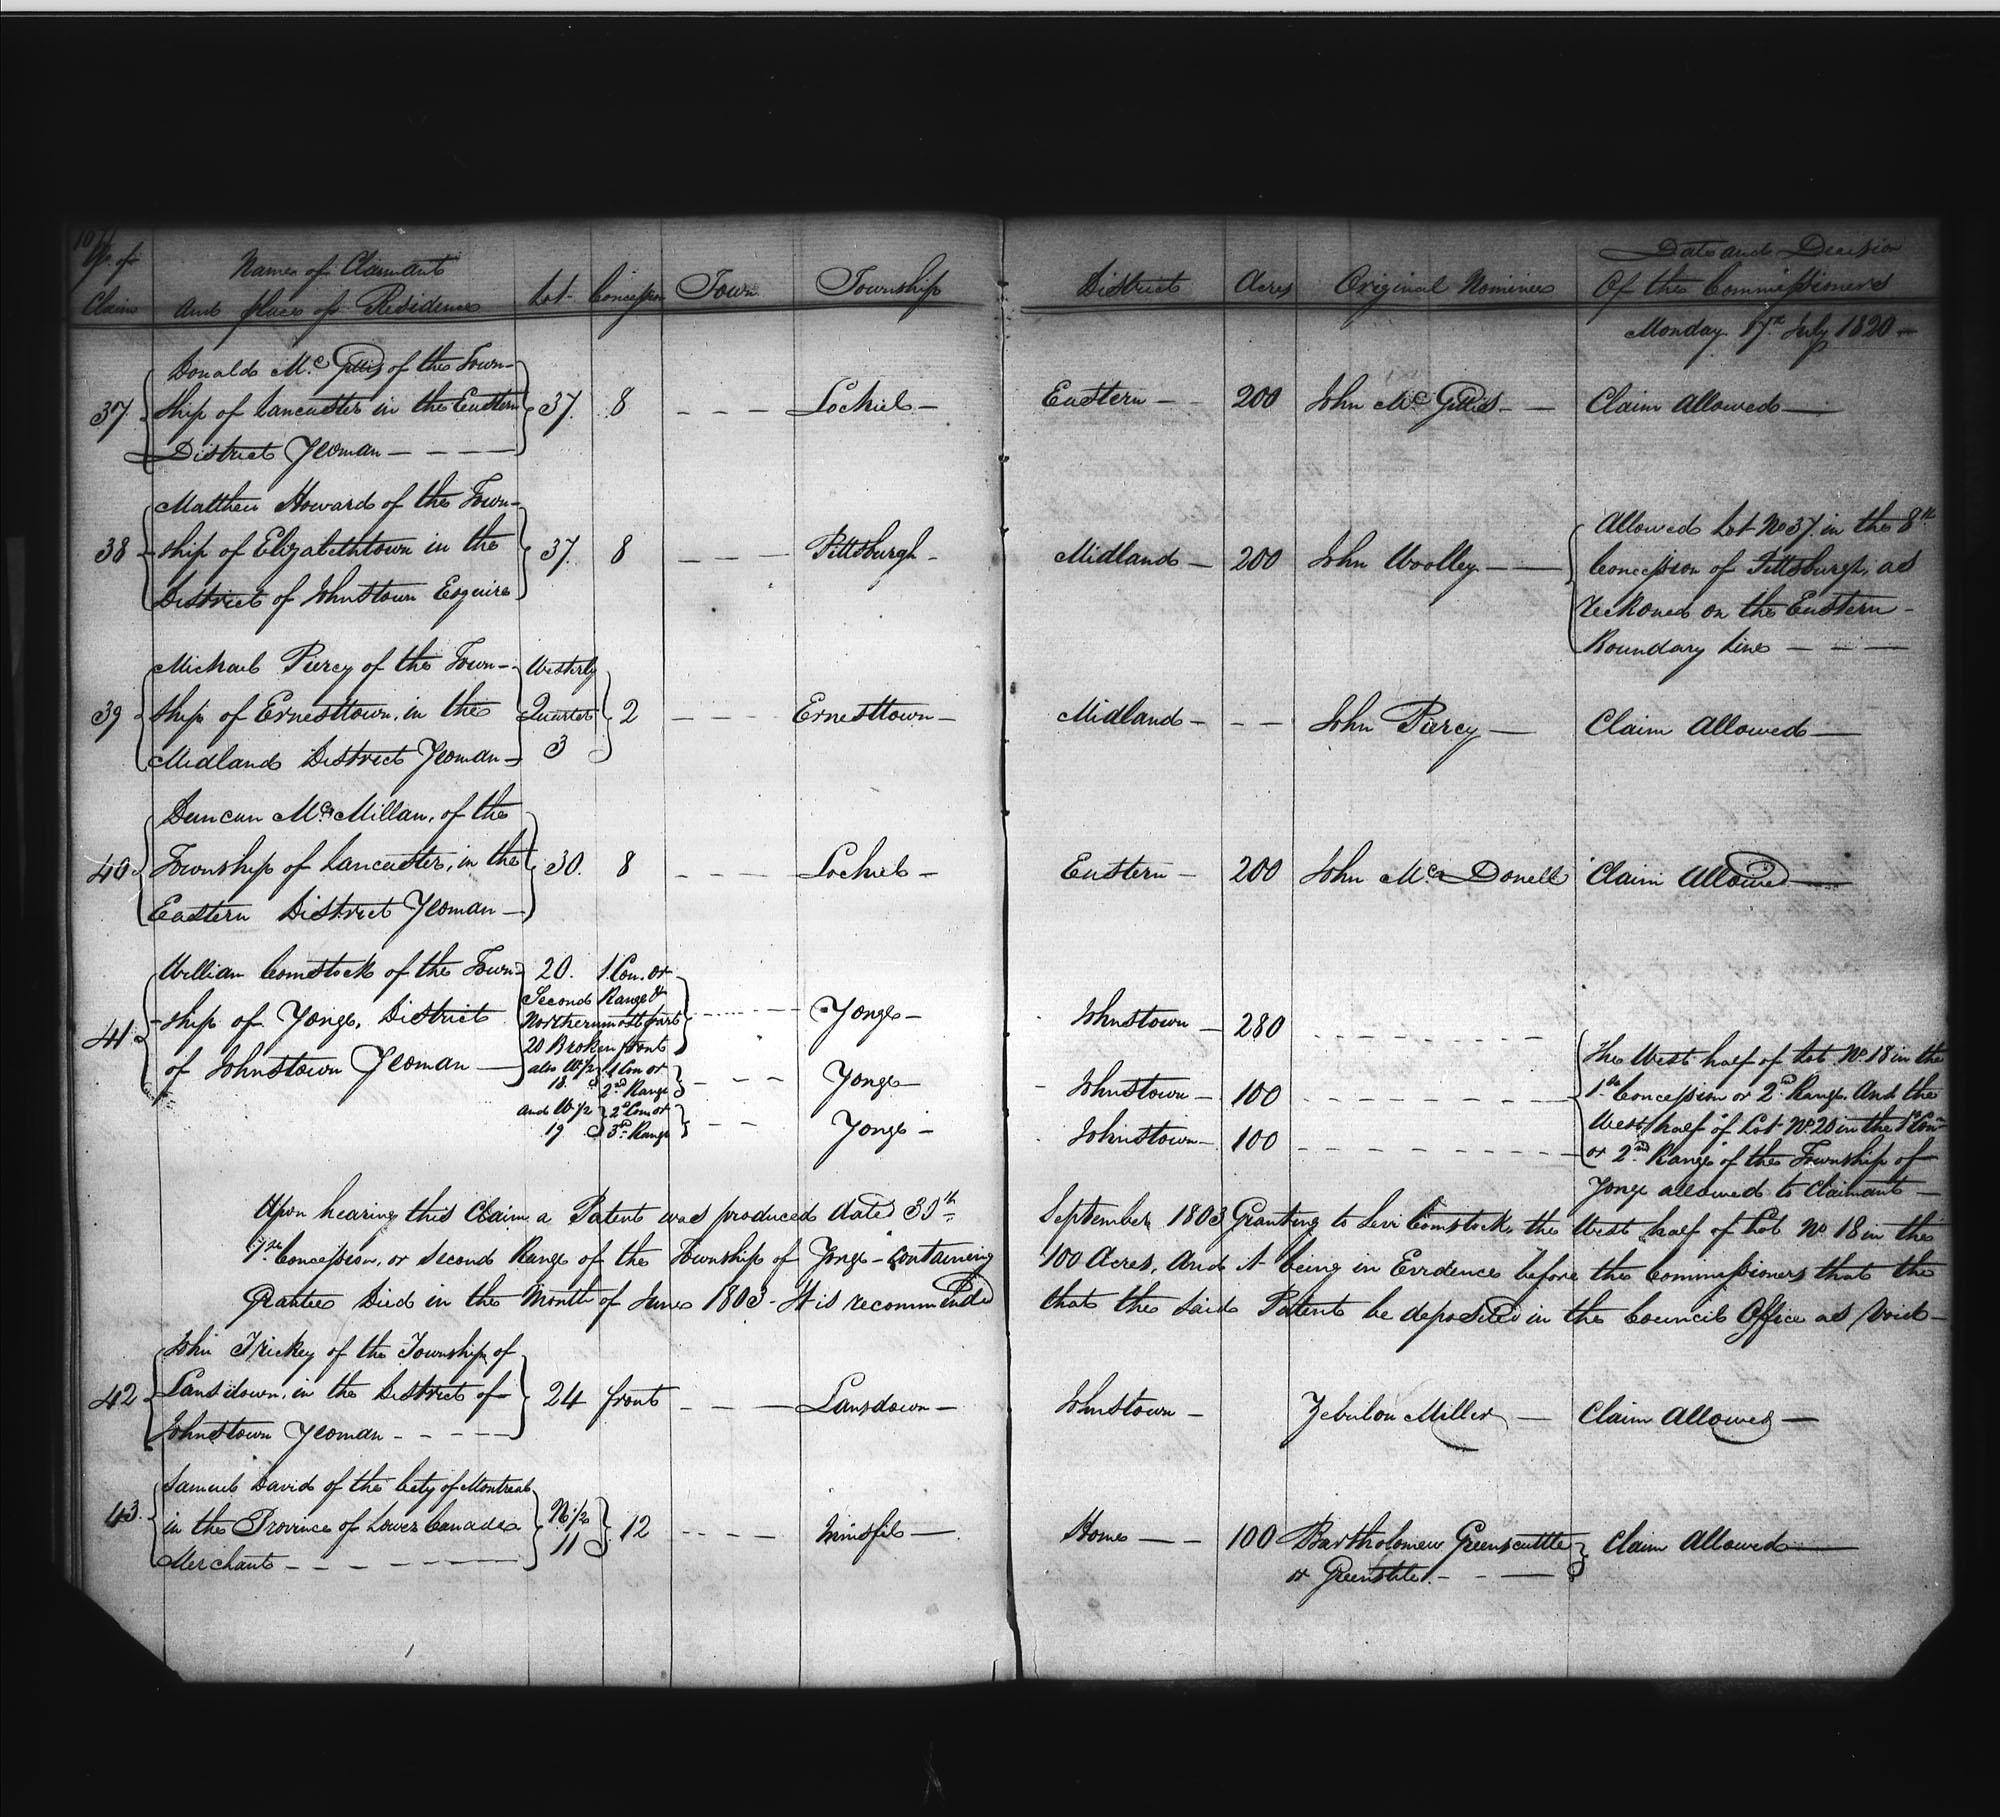 107
No. of Claim
Names of Claimant and place of Residence
Lot
Concession
Town
Township
District
Acres
Original Nominee
Date and Decision Of the Commissioners
Monday 17th July 1820 —
37. Donald McGillis of the Town- 37. 8 — — — Lochiel — Eastern — — 200 John McGillis — — Claim Allowed —
ship of Lancaster in the Eastern
District Yeoman — — — —
38 Matthew Howard of the Town- 37. 8 — — — Pittsburgh — Midland — 200 John Woolley — — Allowed Lot No 37. in the 8th
ship of Elizabethtown in the Concession of Pittsburgh, as
District of Johnstown Esquire reckoned on the Eastern —
Boundary Line — — — —
39 Michael Piercy of the Town- Westerly Quarter 3 2 — — — Ernesttown — Midland — — — John Piercy — Claim Allowed —
ship of Ernesttown, in the
Midland District Yeoman —
40 Duncan McMillan, of the 30. 8 — — — Lochiel — Eastern — 200 John McDonell Claim Allowed —
Township of Lancaster, in the
Eastern District Yeoman —
41 William Comstock of the Town-
ship of Yonge, District
of Johnstown Yeoman —
20. 1. Con. or
Second Range &
Northernmost part
20 Broken front
Yonge — Johnstown — 280
also W. 1/2 18. 1 Con or 2nd Range — — — Yonge — Johnstown — 100
and W. 1/2 19 2d Con or 3d Range — — Yonge — Johnstown — 100
The West half of Lot No. 18 in the
1st Concession or 2d Range. And the
West half of Lot No. 20 in the 1st Con
or 2nd Range of the Township of
Yonge allowed to Claimant —
Upon hearing this Claim a Patent was produced dated 30th September 1803 Granting to Levi Comstock, the West half of Lot No 18 in the
1st Concession, or Second Range of the Township of Yonge — containing 100 Acres, And it being in Evidence before the Commissioners that the
Grantee Died in the Month of June 1803 — It is recommended that the said Patent be deposited in the Council Office as Void —
42 John Trickey of the Township of 24 front — — — Lansdown — Johnstown — Zebulon Miller — Claim Allowed —
Lansdown, in the District of
Johnstown Yeoman — — — —
43. Samuel David of the City of Montreal N. 1/2 11 12 — — — — Innisfil — Home — — 100 Bartholomew Greenscuttle Claim Allowed —
in the Province of Lower Canada or Greenstile. — — —
Merchant — — — — —